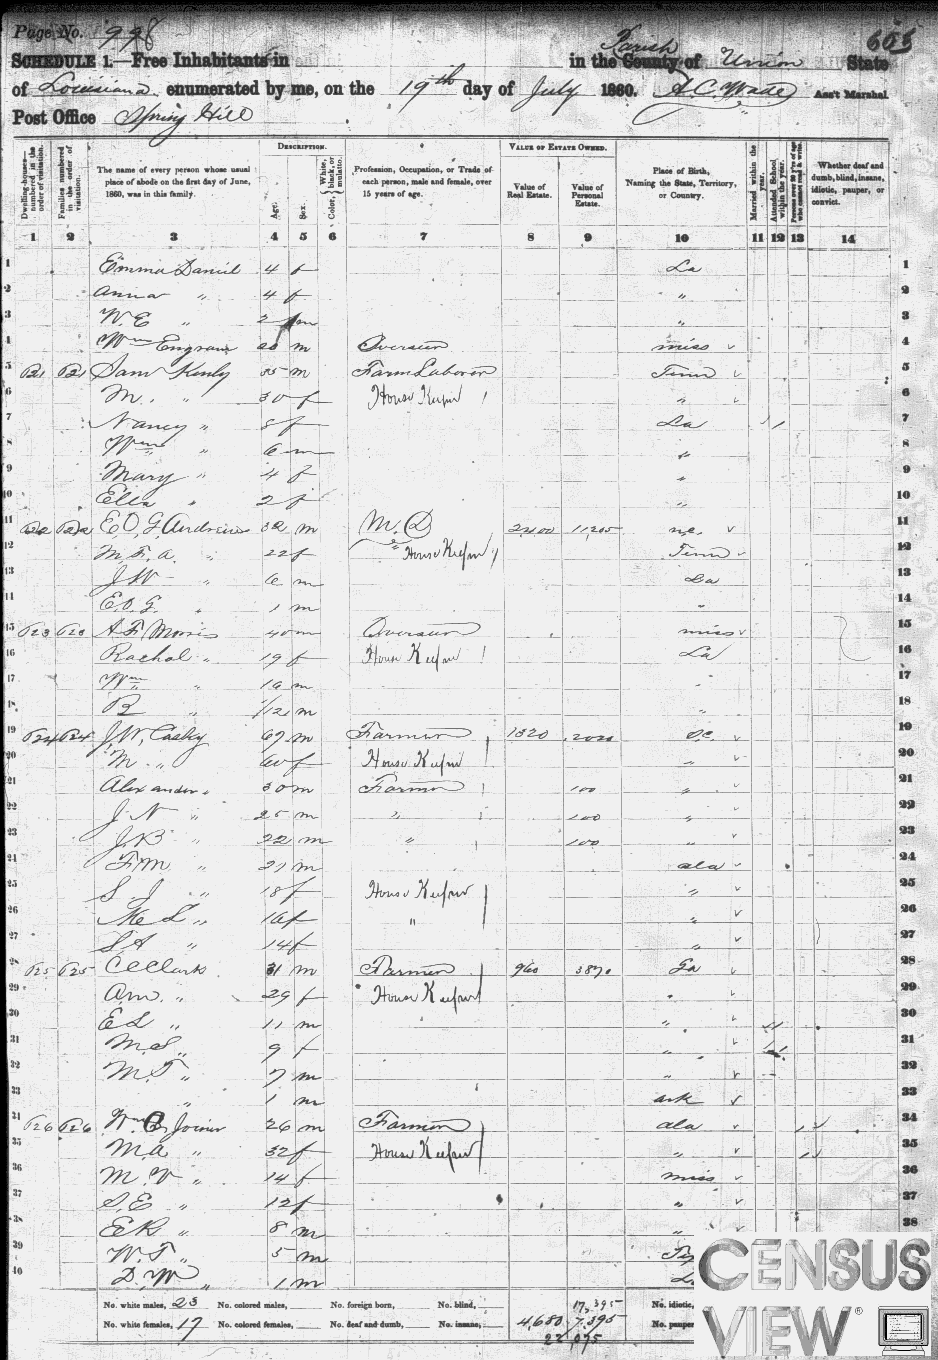 Page No. 998 605
SCHEDULE 1.—Free Inhabitants in in the County of Parish Union State
of Louisiana enumerated by me, on the 19th day of July 1860. A C Wade Ass't Marshal.
Post Office Spring Hill
Dwelling-houses—numbered in the order of visitation. Families numbered in the order of visitation. The name of every person whose usual place of abode on the first day of June, 1860, was in this family. DESCRIPTION. Age. Sex. Color, White, black, or mulatto. Profession, Occupation, or Trade of each person, male and female, over 15 years of age. VALUE OF ESTATE OWNED. Value of Real Estate. Value of Personal Estate. Place of Birth, Naming the State, Territory, or Country. Married within the year. Attended School within the year. Persons over 20 y'rs of age who cannot read & write. Whether deaf and dumb, blind, insane, idiotic, pauper, or convict.
1 2 3 4 5 6 7 8 9 10 11 12 13 14
1 Emma Daniel 4 f La 1
2 Anna " 4 f " 2
3 W. E " 2 m " 3
4 Wm m Overseer miss 4
5 Sam 35 m Farm Laborer Tenn 5
6 M. " 30 f House Keeper " 6
7 Nancy " 8 f La 7
8 Wm " 6 m " 8
9 Mary " 4 f " 9
10 Ella " 2 f " 10
11 E. O. G. Andrews 32 m M. D 2400 11,205 n.c. 11
12 M. F. A. " 22 f House Keeper Tenn 12
13 J W " 6 m La 13
14 E. O. G. " 1 m " 14
15 623 623 A F Morris 40 m Overseer miss 15
16 Rachal " 19 f House Keeper La 16
17 Wm " m " 17
18 B " 1/12 m " 18
19 624 624 J. W. Casky 67 m Farmer 1320 2020 S.C. 19
20 M. " 60 f House Keeper " 20
21 Alexander " 30 m Farmer 100 " 21
22 J. N " 25 m " 100 " 22
23 J. B " 22 m " 100 " 23
24 F. M. " 21 m ala 24
25 S J. " 18 f House Keeper " 25
26 L " 16 f " " 26
27 S. A " 14 f " 27
28 625 625 C C Clark 31 m Farmer 960 3870 Ga 28
29 A. m. " 29 f House Keeper " 29
30 E S " 11 m " 30
31 M. S " 9 f " 31
32 M. T " 7 m " 32
33 " 1 m ark 33
34 626 626 Wm B. Joiner 26 m Farmer ala 34
35 M a " 32 f House Keeper " 35
36 M. V " 14 f miss 36
37 S. E " 12 f " 37
38 E B " 8 m " 38
39 W. T " 5 m
40 D. W " 1 m
No. white males, 23 No. colored males, No. foreign born, No. blind, 17,395 No. idiotic,
No. white females, 17 No. colored females, No. deaf and dumb, No. insane, 4,680 7,395 No. pauper
22,075
CENSUS
VIEW ®